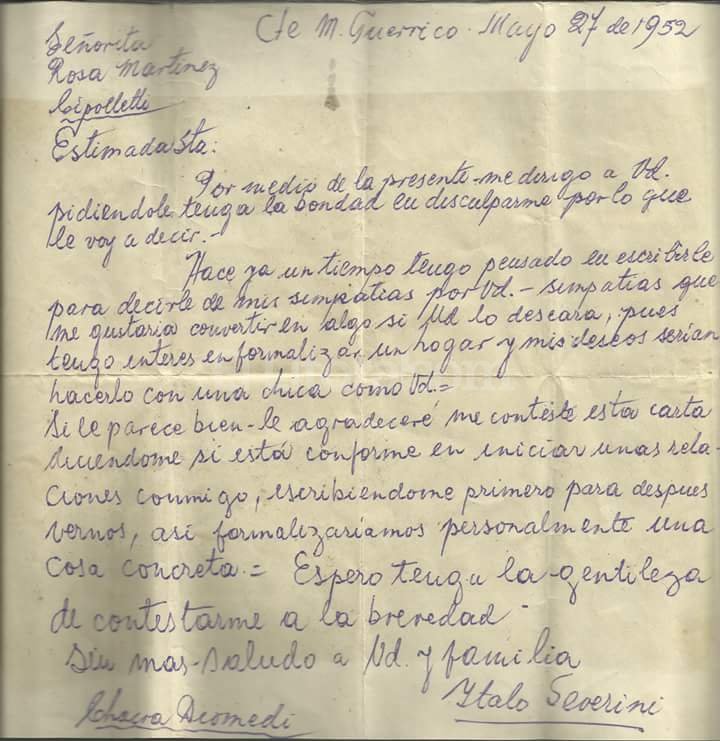 Cte M. Guerrico. Mayo 27 de 1952
Señorita
Rosa Martinez
Cipolletti
Estimada Sta:
Por medio de la presente-me dirigo a Vd.
pidiendole tenga la bondad en disculparme por lo que
le voy a decir.-
Hace ya un tiempo tengo pensado en escribirle
para decirle de mis simpatias por Vd.- simpatias que
me gustaria convertir en algo si Vd lo deseara, pues
tengo interes en formalizar un hogar y mis deseos serian
hacerlo con una chica como Vd.=
Si le parece bien-le agradeceré me conteste esta carta
diciendome si está conforme en iniciar unas rela-
ciones conmigo, escribiendome primero para despues
vernos, asi formalizaríamos personalmente una
cosa concreta.= Espero tenga la gentileza
de contestarme a la brevedad-
Sin mas-saludo a Vd. y familia
Italo Severini
Chacra Diomedi